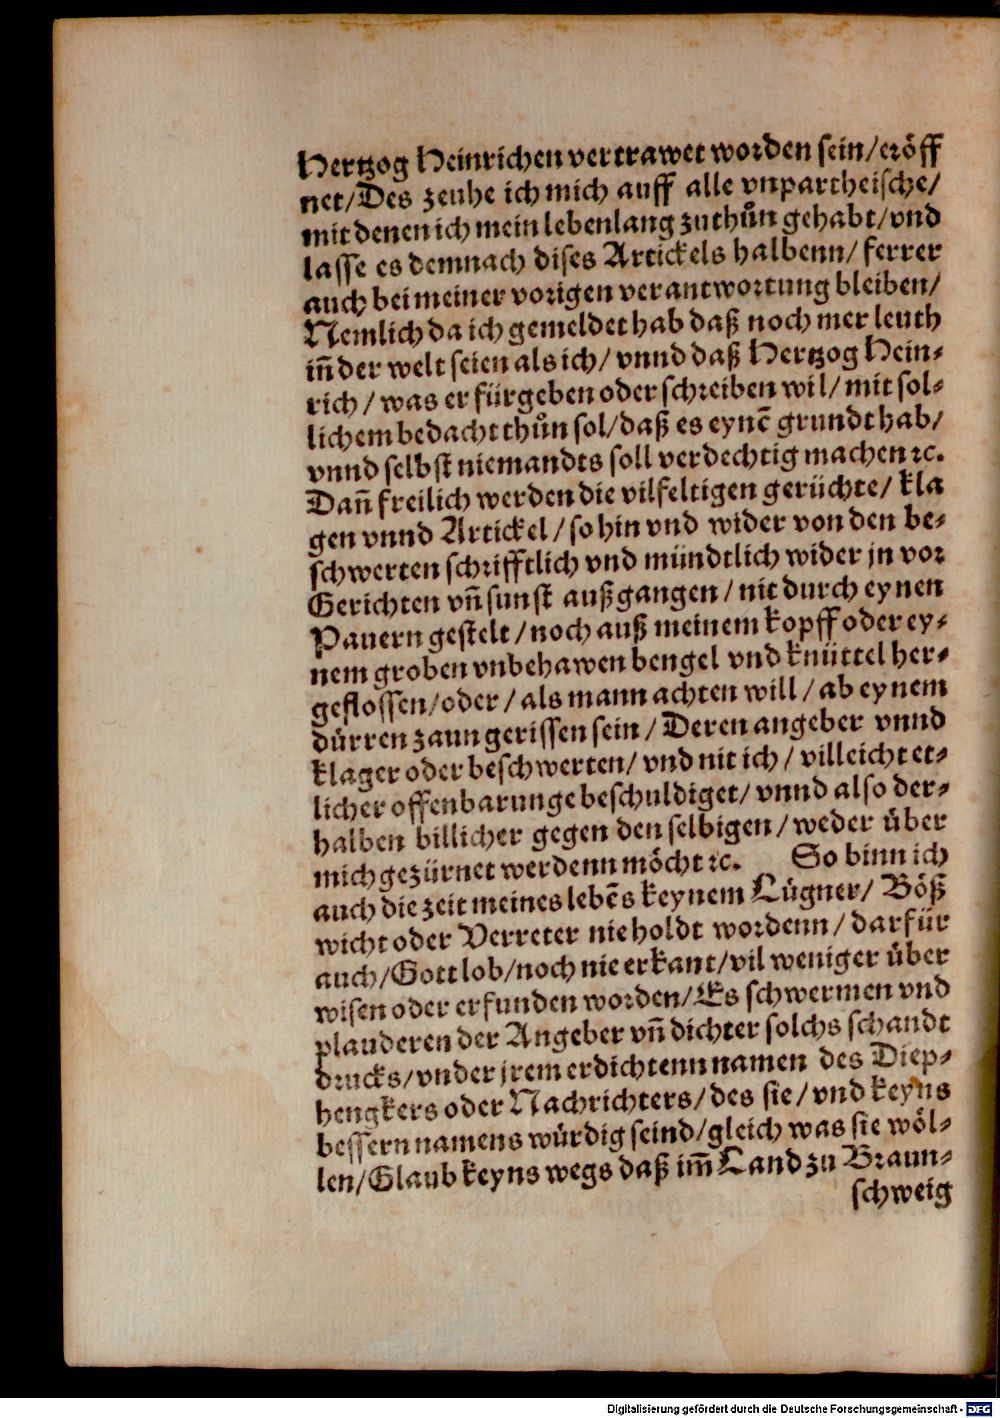 Hertzog Heinrichen vertrawet worden sein/eröff
net/Des zeuhe ich mich auff alle vnpartheische/
mit denen ich mein lebenlang zuthůn gehabt/vnd
lasse es demnach dises Artickels halbenn/ferrer
auch bei meiner vorigen verantwortung bleiben/
Nemlich da ich gemeldet hab daß noch mer leuth
iñ der welt seien als ich/vnnd daß Hertzog Hein⸗
rich/was er fürgeben oder schreiben wil/mit sol⸗
lichem bedacht thůn sol/daß es eynē grundt hab/
vnnd selbst niemandts soll verdechtig machen ꝛc.
Dañ freilich werden die vilfeltigen gerüchte/kla
gen vnnd Artickel/so hin vnd wider von den be⸗
schwerten schrifftlich vnd mündtlich wider jn vor
Gerichten vñ sunst außgangen/nit durch eynen
Pauern gestelt/noch auß meinem kopff oder ey⸗
nem groben vnbehawen bengel vnd knüttel her⸗
geflossen/oder/als mann achten will/ab eynem
dürren zaun gerissen sein/Deren angeber vnnd
klager oder beschwerten/vnd nit ich/villeicht et⸗
licher offenbarunge beschuldiget/vnnd also der⸗
halben billicher gegen den selbigen/weder über
mich gezürnet werdenn möcht ꝛc. So binn ich
auch die zeit meines lebēs keynem Lügner/Böß
wicht oder Verreter nie holdt wordenn/darfür
auch/Gott lob/noch nie erkant/vil weniger über
wisen oder erfunden worden/Es schwermen vnd
plauderen der Angeber vñ dichter solchs schandt
drucks/vnder jrem erdichtenn namen des Diep⸗
hengkers oder Nachrichters/des sie/vnd keyns
bessern namens würdig seind/gleich was sie wöl⸗
len/Glaub keyns wegs daß im̃ Land zu Braun⸗
schweig
Digitalisierung gefördert durch die Deutsche Forschungsgemeinschaft - DFG